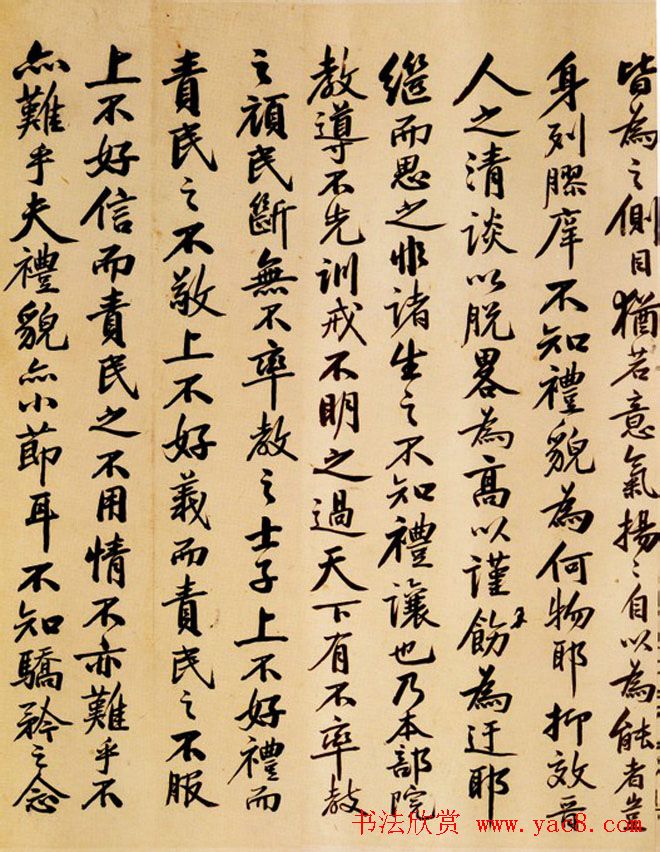 皆為之側目猶若意氣揚々自以為能者豈
身列膠庠不知禮貌為何物耶抑效晉
人之清談以脱畧為高以謹飭為迂耶
繼而思之非諸生之不知禮讓也乃本部院
教導不先訓戒不明之過天下有不率教
之頑民斷無不率教之士子上不好禮而
責民之不敬上不好義而責民之不服
上不好信而責民之不用情不亦難乎不
亦難乎夫禮貌亦小節耳不知驕矜之念
书法欣赏 www.yac8.com